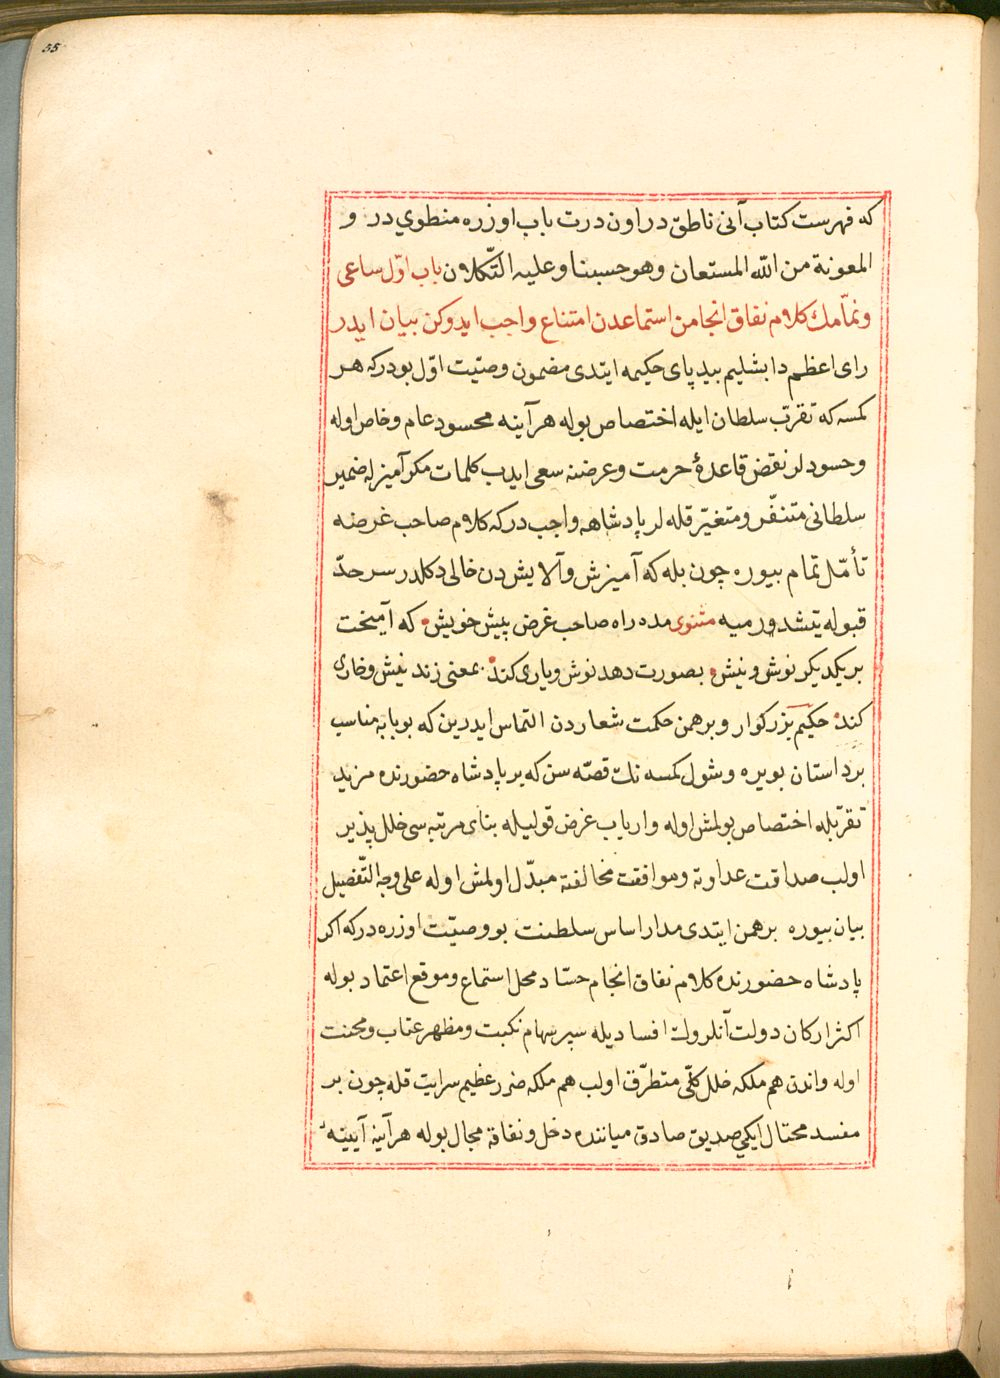 55
که فهرست کتاب آنی ناطق در اون درت باب اوزره منطوي در و
المعونة من الله المستعان وهو حسبنا وعليه التّكلان باب اوّل ساعی
ونمّامك كلام نفاق انجامن استماعدن امتناع واجب ايدوكن بيان ايدر
رای اعظم دابشلیم بیدپای حکیمه ایتدی مضمون وصیّت اوّل بودرکه هر
کمسه که تقرّب سلطان ایله اختصاص بوله هرآینه محسود عام وخاص اوله
وحسودلر نقض قاعدهٔ حرمت وعرضنه سعی ایدب کلمات مکرآمیزله ضمیر
سلطانی متنفّر ومتغیّر قله لر پادشاهه واجب درکه کلام صاحب غرضه
تأمّل تمام بیوره چون بله که آمیزش وآلایش دن خالی دکلدر سرحدّ
قبوله یتشدورمیه مثنوی مده راه صاحب غرض پیش خویش که آمیخت
بریکدیکر نوش ونیش بصورت دهد نوش ویاری کند بمعنی زند نیش وخاری
کند حکیم بزرکوار وبرهمن حکمت شعاردن التماس ایدرین که بو بابه مناسب
برداستان بویره وشول کمسه نك قصّه سن که بر پادشاه حضورنده مزید
تقرّبله اختصاص بولمش اوله وارباب غرض قولیله بنای مرتبه سی خلل پذیر
اولب صداقت عداوته وموافقت مخالفته مبدّل اولمش اوله علی وجه التّفضیل
بیان بیوره برهمن ایتدی مدار اساس سلطنت بو وصیّت اوزره درکه اکر
پادشاه حضورنده کلام نفاق انجام حسّاد محل استماع وموقع اعتماد بوله
اکثر ارکان دولت آنلروك افسادیله سپر سهام نکبت ومظهر عتاب ومحنت
اوله واندن هم ملکه خلل کلّی متطرّق اولب هم ملکه ضرر عظیم سرایت قله چون بر
مفسد محتال ایکی صدیق صادق میاننده دخل ونفاقه مجال بوله هرآینه آیینهٔ